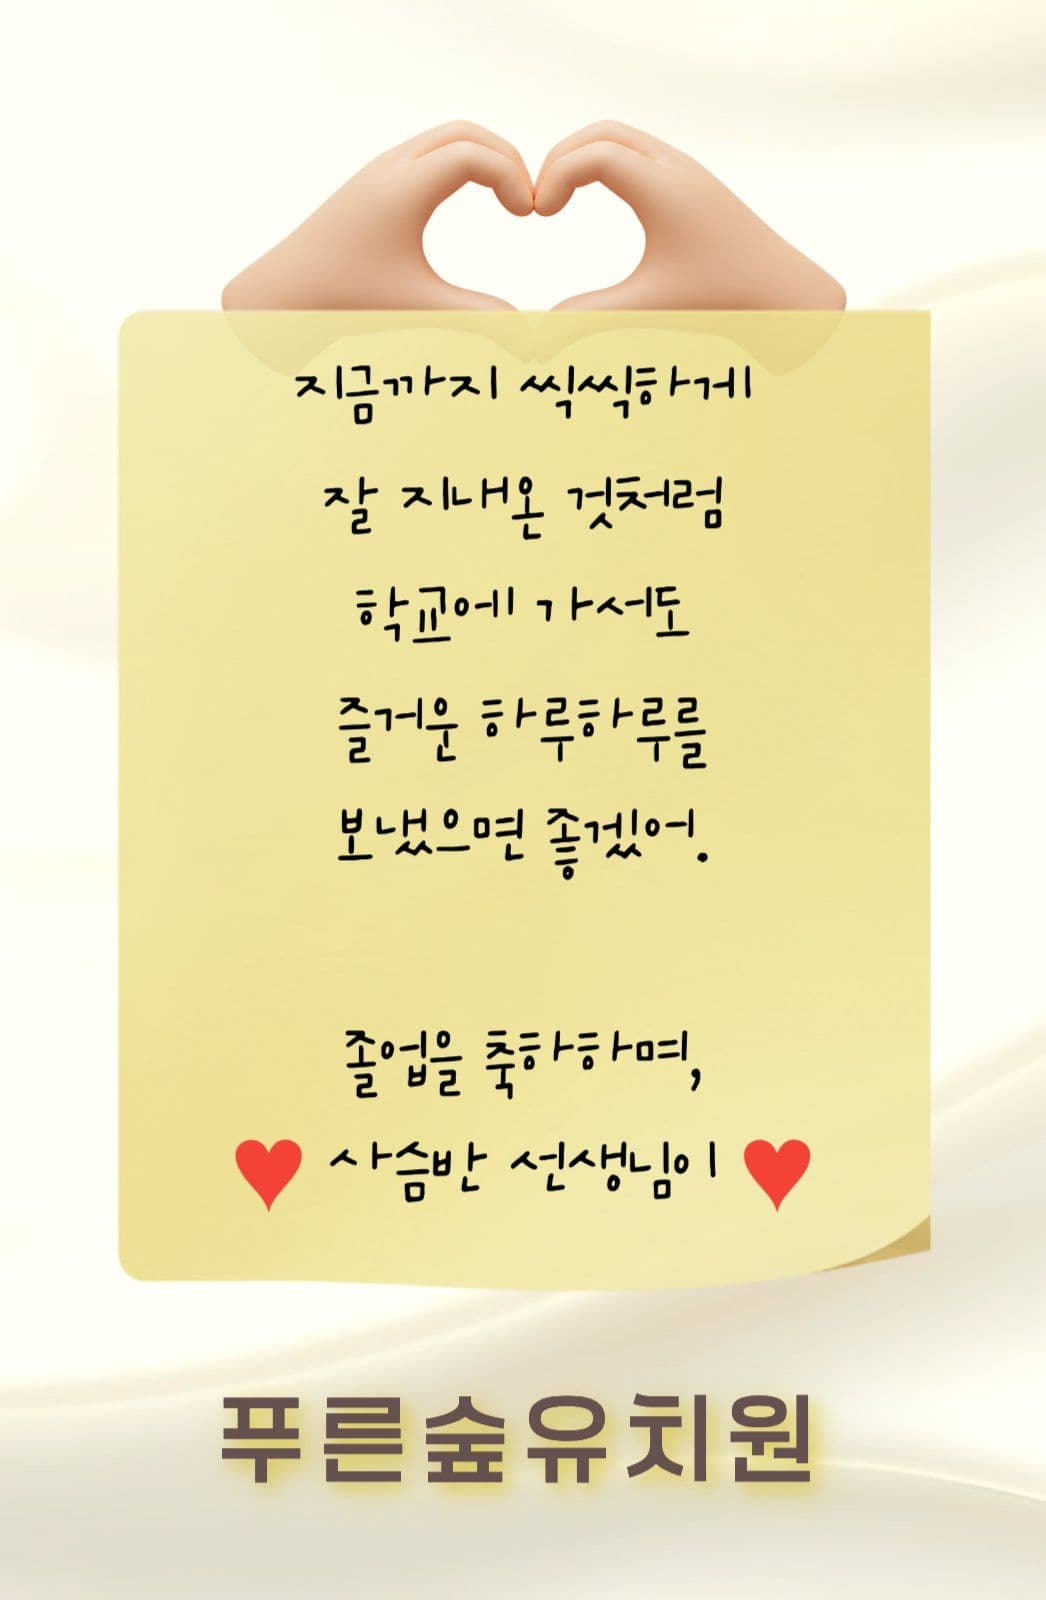 지금까지 씩씩하게
잘 지내온 것처럼
학교에 가서도
즐거운 하루하루를
보냈으면 좋겠어.
졸업을 축하하며,
♥ 사슴반 선생님이 ♥
푸른숲유치원